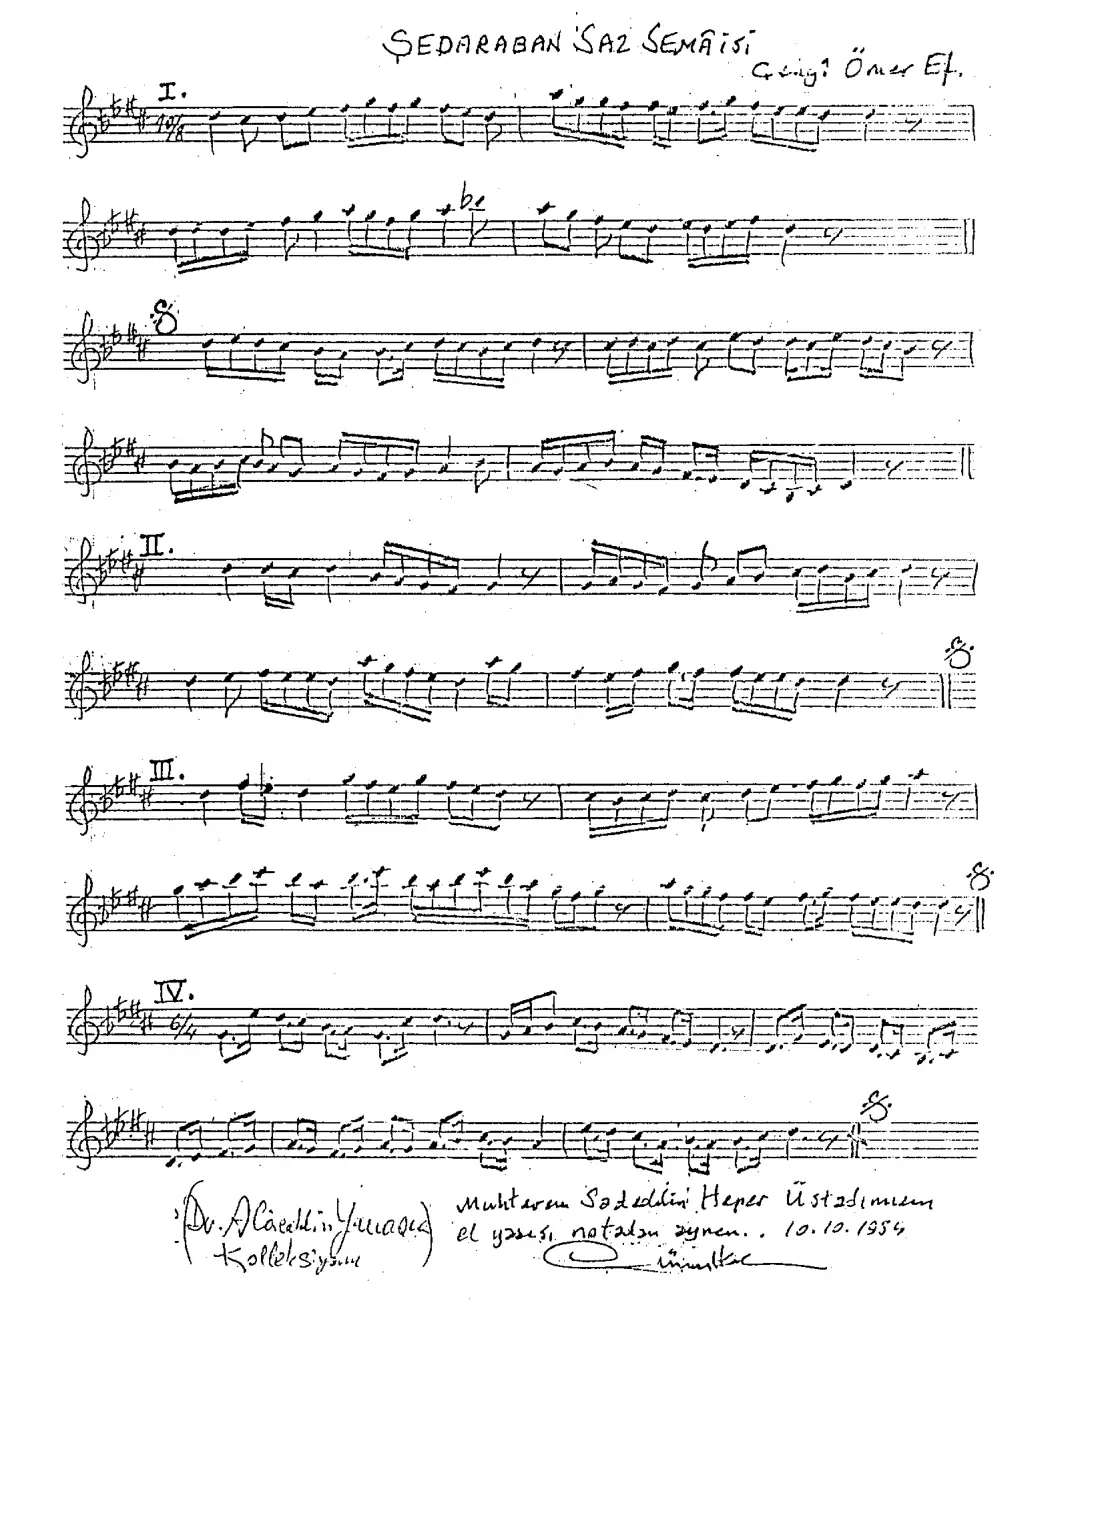 ŞEDARABAN SAZ SEMÂİSİ
Çengî Ömer Ef.
I.
10/8
II.
III.
IV.
6/4
(Dr. Alâeddin Yavaşca
Kolleksiyonu)
Muhterem Sadeddin Heper Üstadımızın
el yazısı notadan aynen.. 10.10.1994